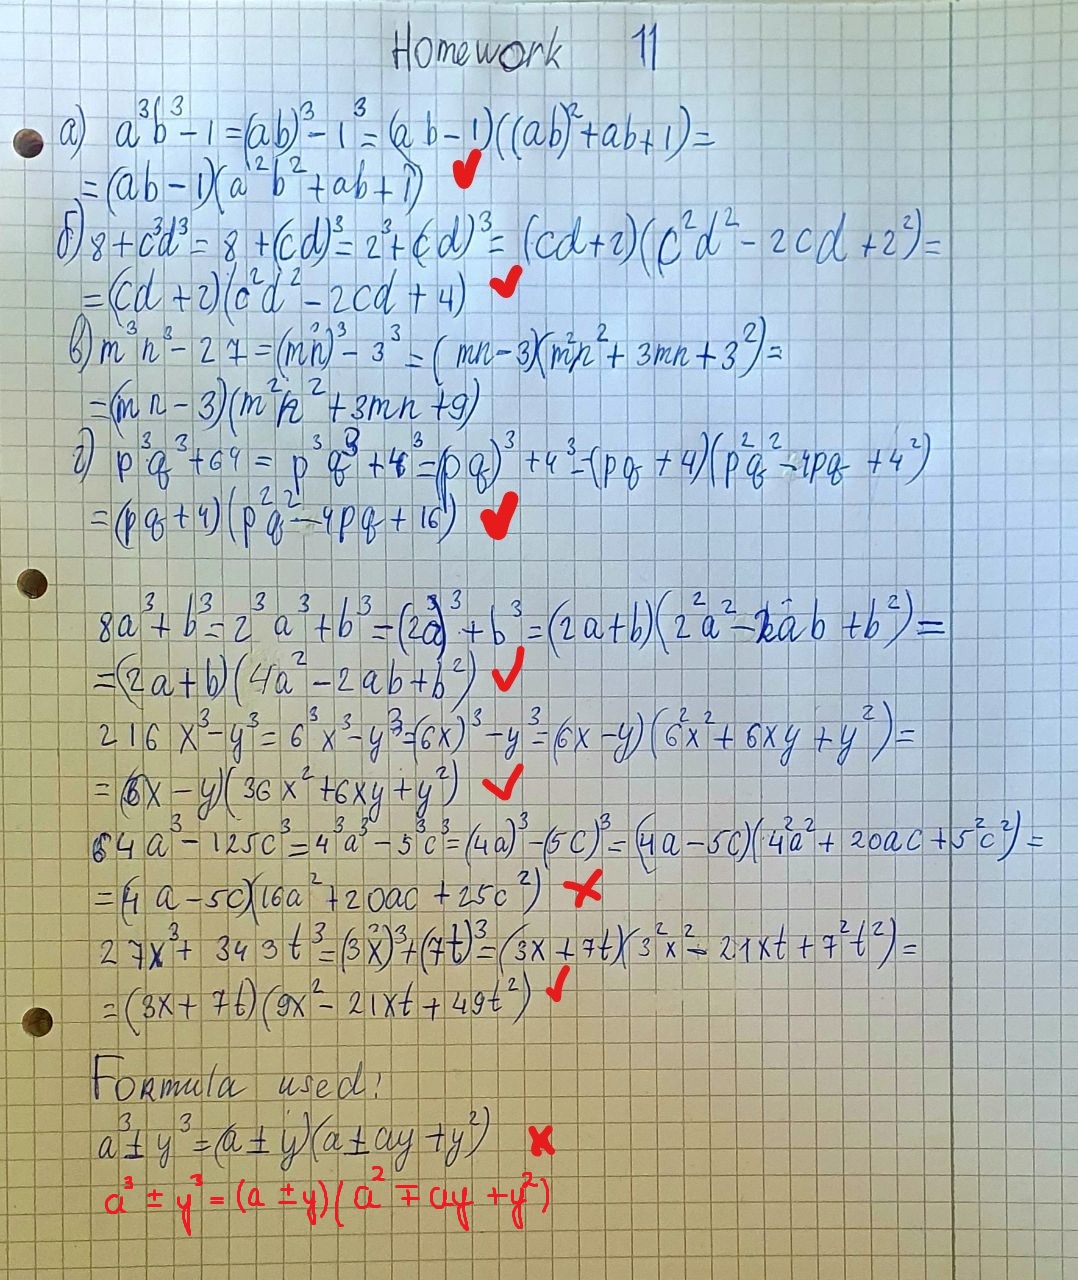 Homework 11
а) a³b³ - 1 = (ab)³ - 1³ = (ab - 1)((ab)² + ab + 1) =
= (ab - 1)(a²b² + ab + 1) ✓
б) 8 + c³d³ = 8 + (cd)³ = 2³ + (cd)³ = (cd + 2)(c²d² - 2cd + 2²) =
= (cd + 2)(c²d² - 2cd + 4) ✓
в) m³n³ - 27 = (mn)³ - 3³ = (mn - 3)(m²n² + 3mn + 3²) =
= (mn - 3)(m²n² + 3mn + 9)
г) p³q³ + 64 = p³q³ + 4³ = (pq)³ + 4³ = (pq + 4)(p²q² - 4pq + 4²)
= (pq + 4)(p²q² - 4pq + 16) ✓
8a³ + b³ = 2³a³ + b³ = (2a)³ + b³ = (2a + b)(2²a² - 2ab + b²) =
= (2a + b)(4a² - 2ab + b²) ✓
216x³ - y³ = 6³x³ - y³ = (6x)³ - y³ = (6x - y)(6²x² + 6xy + y²) =
= (6x - y)(36x² + 6xy + y²) ✓
64a³ - 125c³ = 4³a³ - 5³c³ = (4a)³ - (5c)³ = (4a - 5c)(4²a² + 20ac + 5²c²) =
= (4a - 5c)(16a² + 20ac + 25c²) ✗
27x³ + 343t³ = (3x)³ + (7t)³ = (3x + 7t)(3²x² - 21xt + 7²t²) =
= (3x + 7t)(9x² - 21xt + 49t²) ✓
Formula used:
a³ ± y³ = (a ± y)(a ± ay + y²) ✗
a³ ± y³ = (a ± y)(a² ∓ ay + y²)